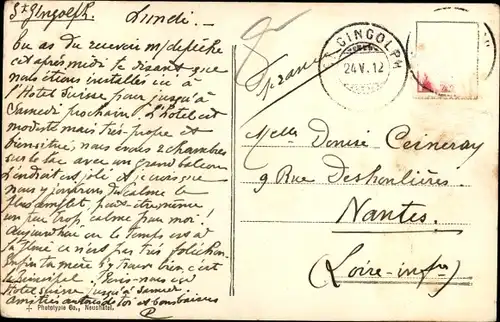 St Gingolph. Lundi. —
Tu as dû recevoir m/ dépêche
cet après midi te disant que
nous étions installés ici à
l'Hôtel Suisse pour jusqu'à
Samedi prochain. L'hôtel est
modeste mais très propre et
bien situé, nous avons 2 chambres
sur le lac avec un grand balcon
L'endroit est joli et je crois que
nous y jouirons du calme le
plus complet, peut-être même
un peu trop calme pour moi!
Aujourd'hui où le temps est à
la pluie ce n'est pas très folichon.
Enfin ta mère s'y trouve bien, c'est
le principal. nous ici
Hôtel Suisse jusqu'à Samedi
amitiés autour de toi et bons baisers
P
Phototypie Co., Neuchâtel.
GINGOLPH
24.V.12
France
Melle Denise Ceineray
9 Rue Deshoulières
Nantes.
(Loire-infre)